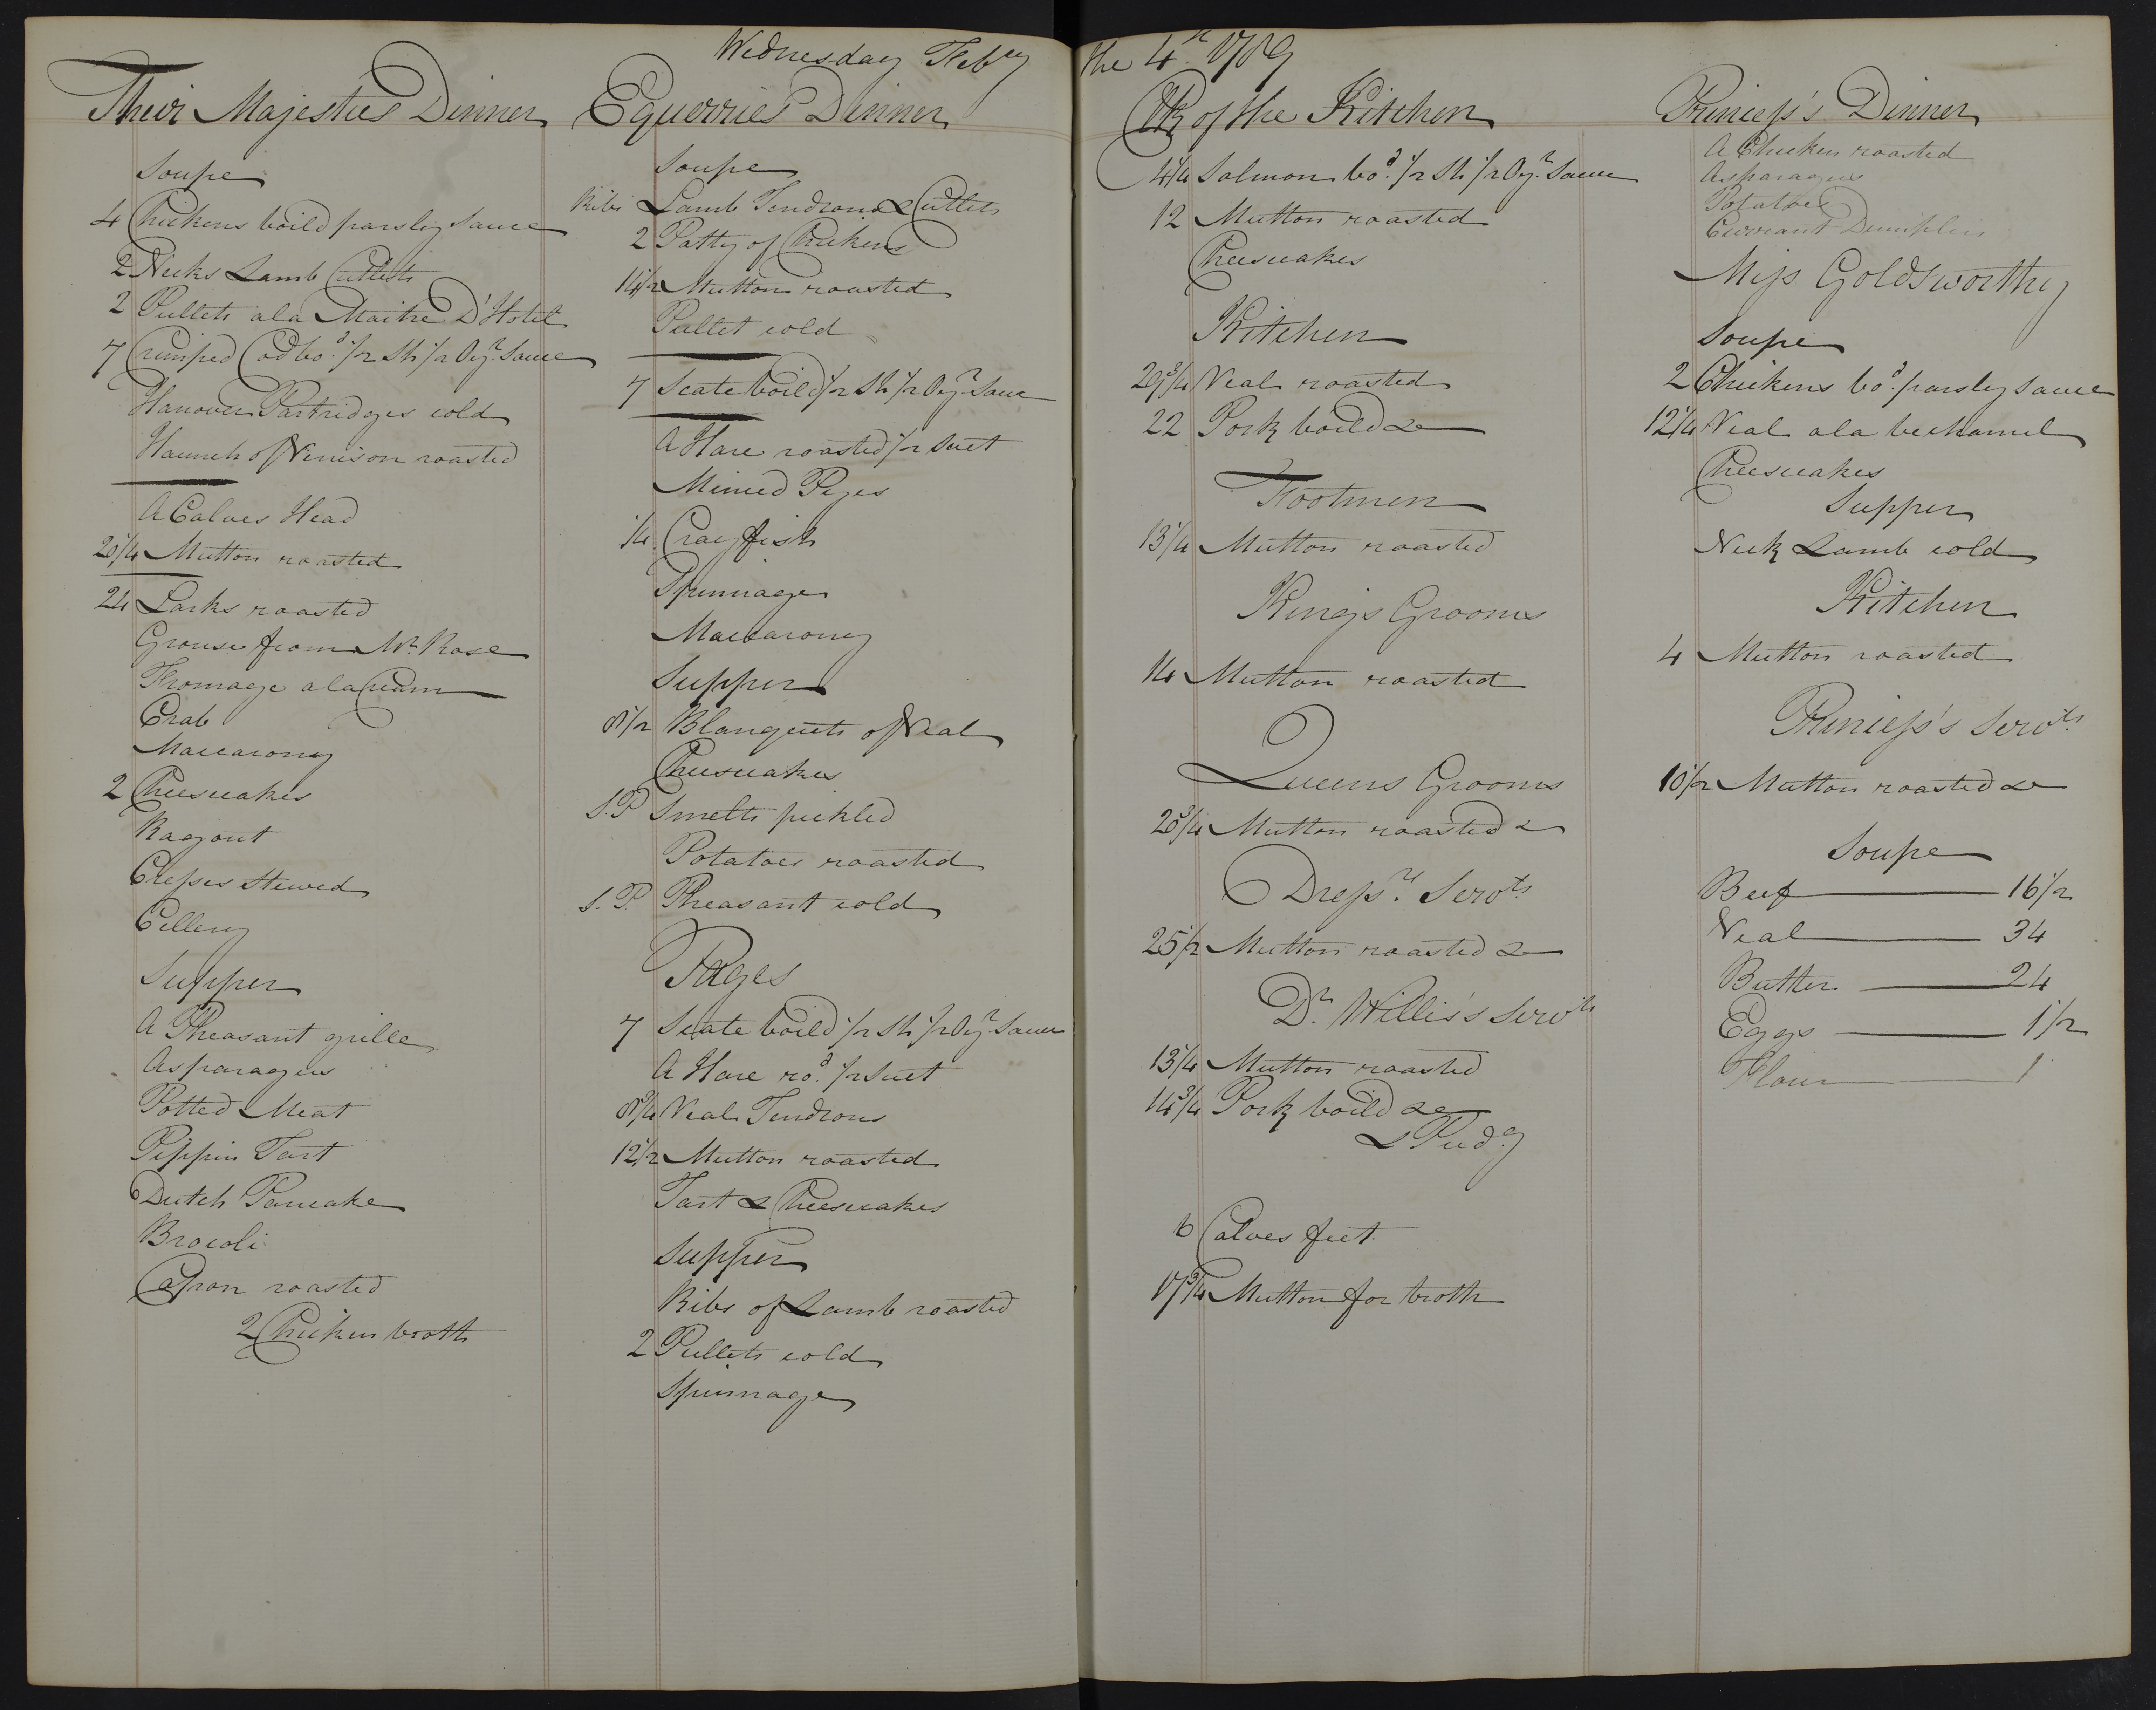 Wednesday Feb^ry the 4^th 1789
Their Majesties Dinner
Soupe
4 Chickens boild parsley Sauce
2 Necks Lamb Cutlets
2 Pullets ala Maitre D'Hotel
7 Crimped Cod bo^d 1/2 Sh 1/2 Oy^r Sauce
Hanover Partridges cold
Haunch of Venison roasted
A Calves Head
20 1/4 Mutton roasted
24 Larks roasted
Grouse from M^r Rose
Fromage a la Cream
Crab
Maccarony
2 Cheescakes
Ragout
Cresses Stewed
Cellery
Supper
A Pheasant grille
Asparagus
Potted Meat
Pippin Tart
Dutch Pancake
Brocoli
Capon roasted
2 Chicken broth
Equerries Dinner
Soupe
Ribs Lamb Tendrons & Cutlets
2 Patty of Chickens
14 1/2 Mutton roasted
Pullet cold
7 Scate boild 1/2 Sh 1/2 Oy^r Sauce
A Hare roasted 1/2 Suet
Minced Pyes
1/4 Crayfish
Spinnage
Maccarony
Supper
8 1/2 Blanquets of Veal
Cheescakes
S.P Smelts pickled
Potatoes roasted
S.P. Pheasant cold
Pages
7 Scate boild 1/2 Sh 1/2 Oy^r Sauce
A Hare ro^d 1/2 Suet
8 3/4 Veal Tendrons
12 1/2 Mutton roasted
Tart & Cheescakes
Supper
Ribs of Lamb roasted
2 Pullets cold
Spinnage
Clk of the Kitchen
4 1/4 Salmon bo^d 1/2 Sh 1/2 Oy^r Sauce
12 Mutton roasted
Cheescakes
Kitchen
29 3/4 Veal roasted
22 Pork boild &c
Footmen
13 1/4 Mutton roasted
King's Grooms
14 Mutton roasted
Queens Grooms
20 3/4 Mutton roasted &
Dress^rs Serv^ts
25 1/2 Mutton roasted &
D^r Willis's Serv^ts
13 1/4 Mutton roasted
14 3/4 Pork boild &c
& Pud^g
6 Calves feet
17 3/4 Mutton for broth
Princess's Dinner
A Chicken roasted
Asparagus
Potatoes
Currant Dumplin
Miss Goldsworthy
Soupe
2 Chickens bo^d parsley Sauce
12 1/4 Veal ala bechamel
Cheescakes
Supper
Neck Lamb cold
Kitchen
4 Mutton roasted
Princess's Serv^ts
10 1/2 Mutton roasted &
Soupe
Beef 16 1/2
Veal 34
Butter 24
Eggs 1 1/2
Flour 1